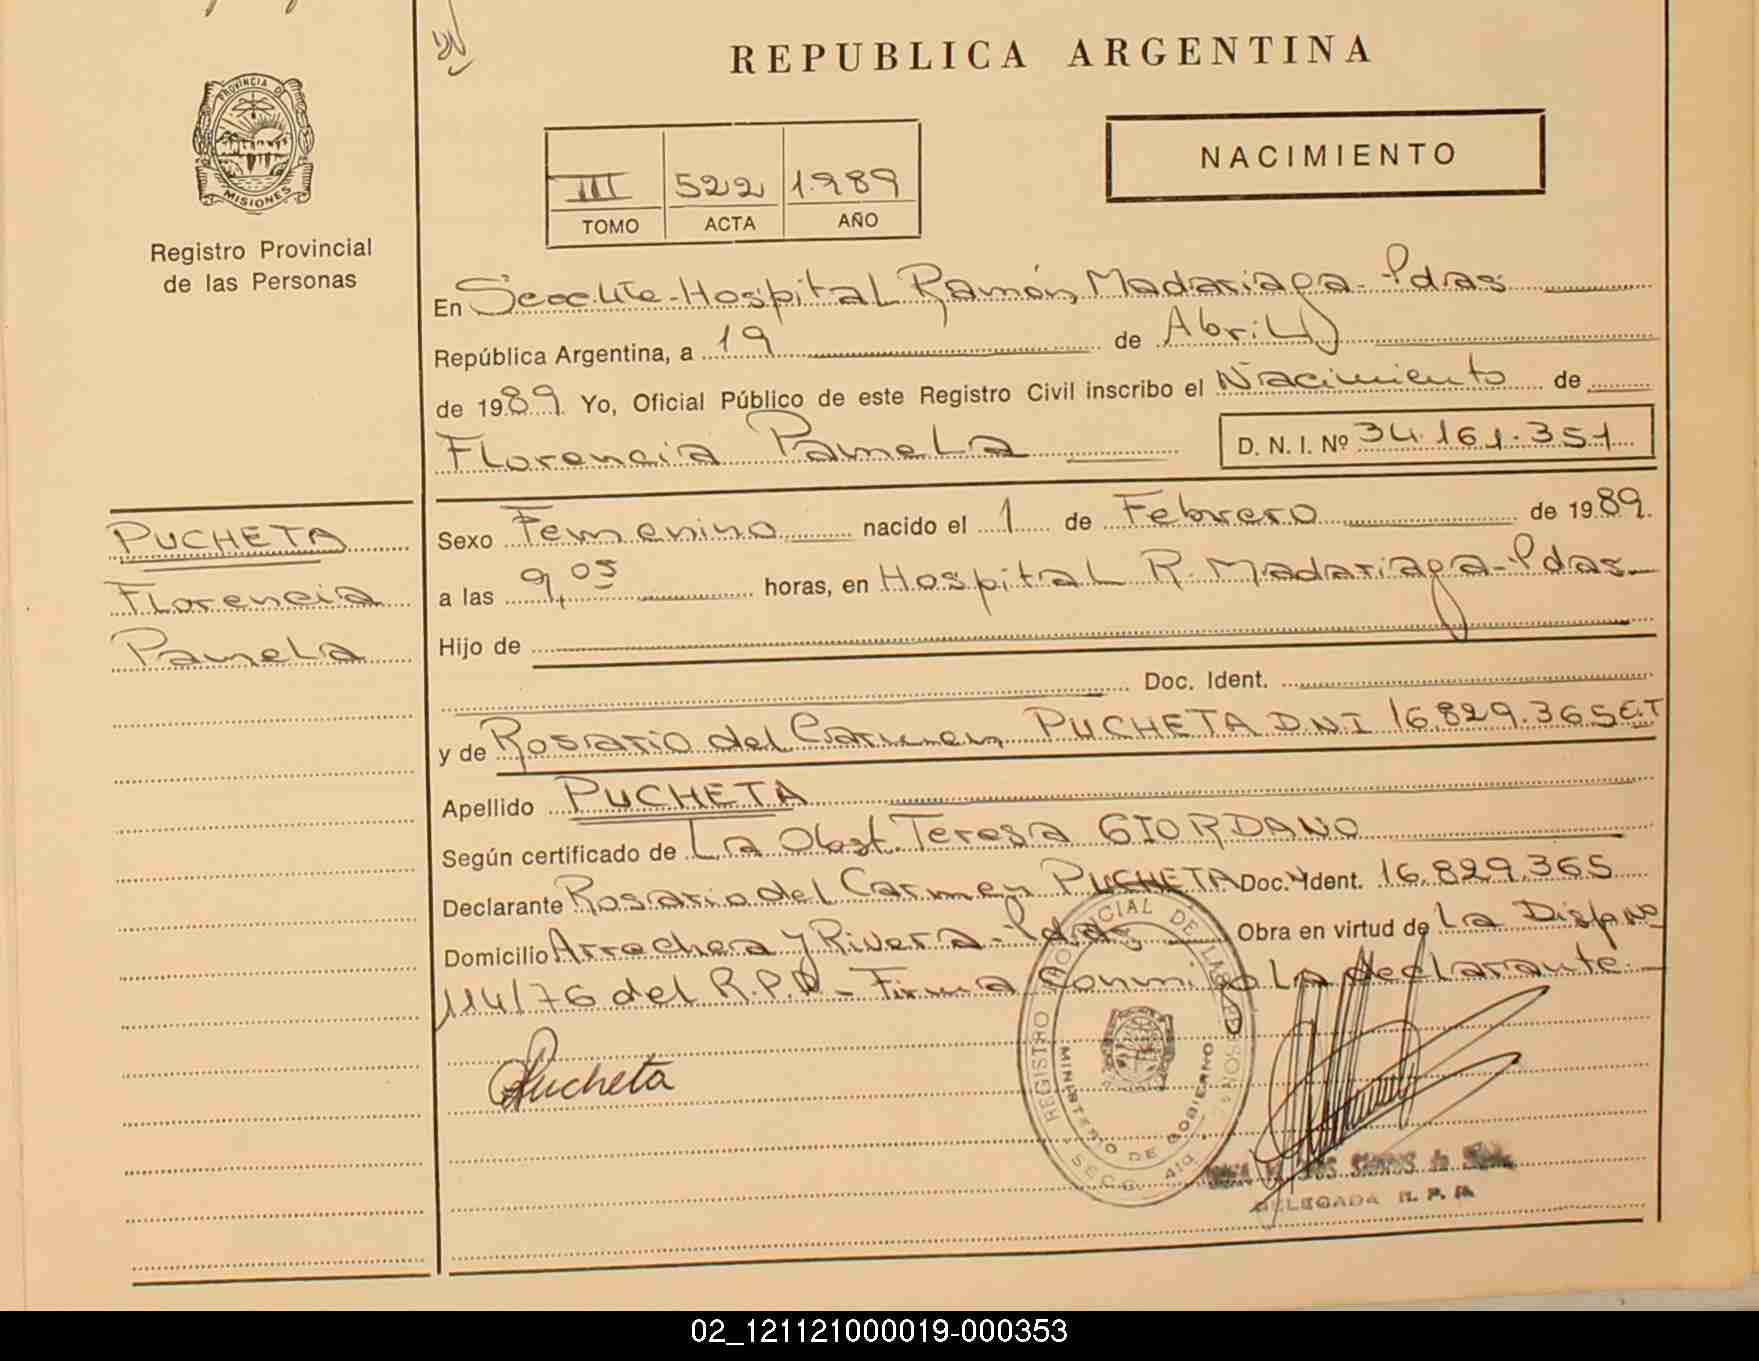 REPUBLICA ARGENTINA
PROVINCIA DE
MISIONES
Registro Provincial
de las Personas
NACIMIENTO
III 522 1.989
TOMO ACTA AÑO
En Hospital Ramón Madariaga - Pdas
República Argentina, a 19 de Abril
de 1989. Yo, Oficial Público de este Registro Civil inscribo el Nacimiento de
Florencia Pamela D. N. I. Nº 34.161.351
PUCHETA
Florencia
Pamela
Sexo Femenino nacido el 1 de Febrero de 1989.
a las 9,05 horas, en Hospital R. Madariaga - Pdas
Hijo de
Doc. Ident.
y de Rosario del Carmen PUCHETA D.N.I 16.829.365
Apellido PUCHETA
Según certificado de La Obst. Teresa GIORDANO
Declarante Rosario del Carmen PUCHETA Doc. Ident. 16.829.365
Domicilio Arrechea y Rivera - Pdas Obra en virtud de La
114/76 del R.P.P - Firma Conmigo La declarante.
Pucheta
REGISTRO PROVINCIAL DE LAS PERSONAS
MINISTERIO DE GOBIERNO
DELEGADA R. P. P.
02_121121000019-000353